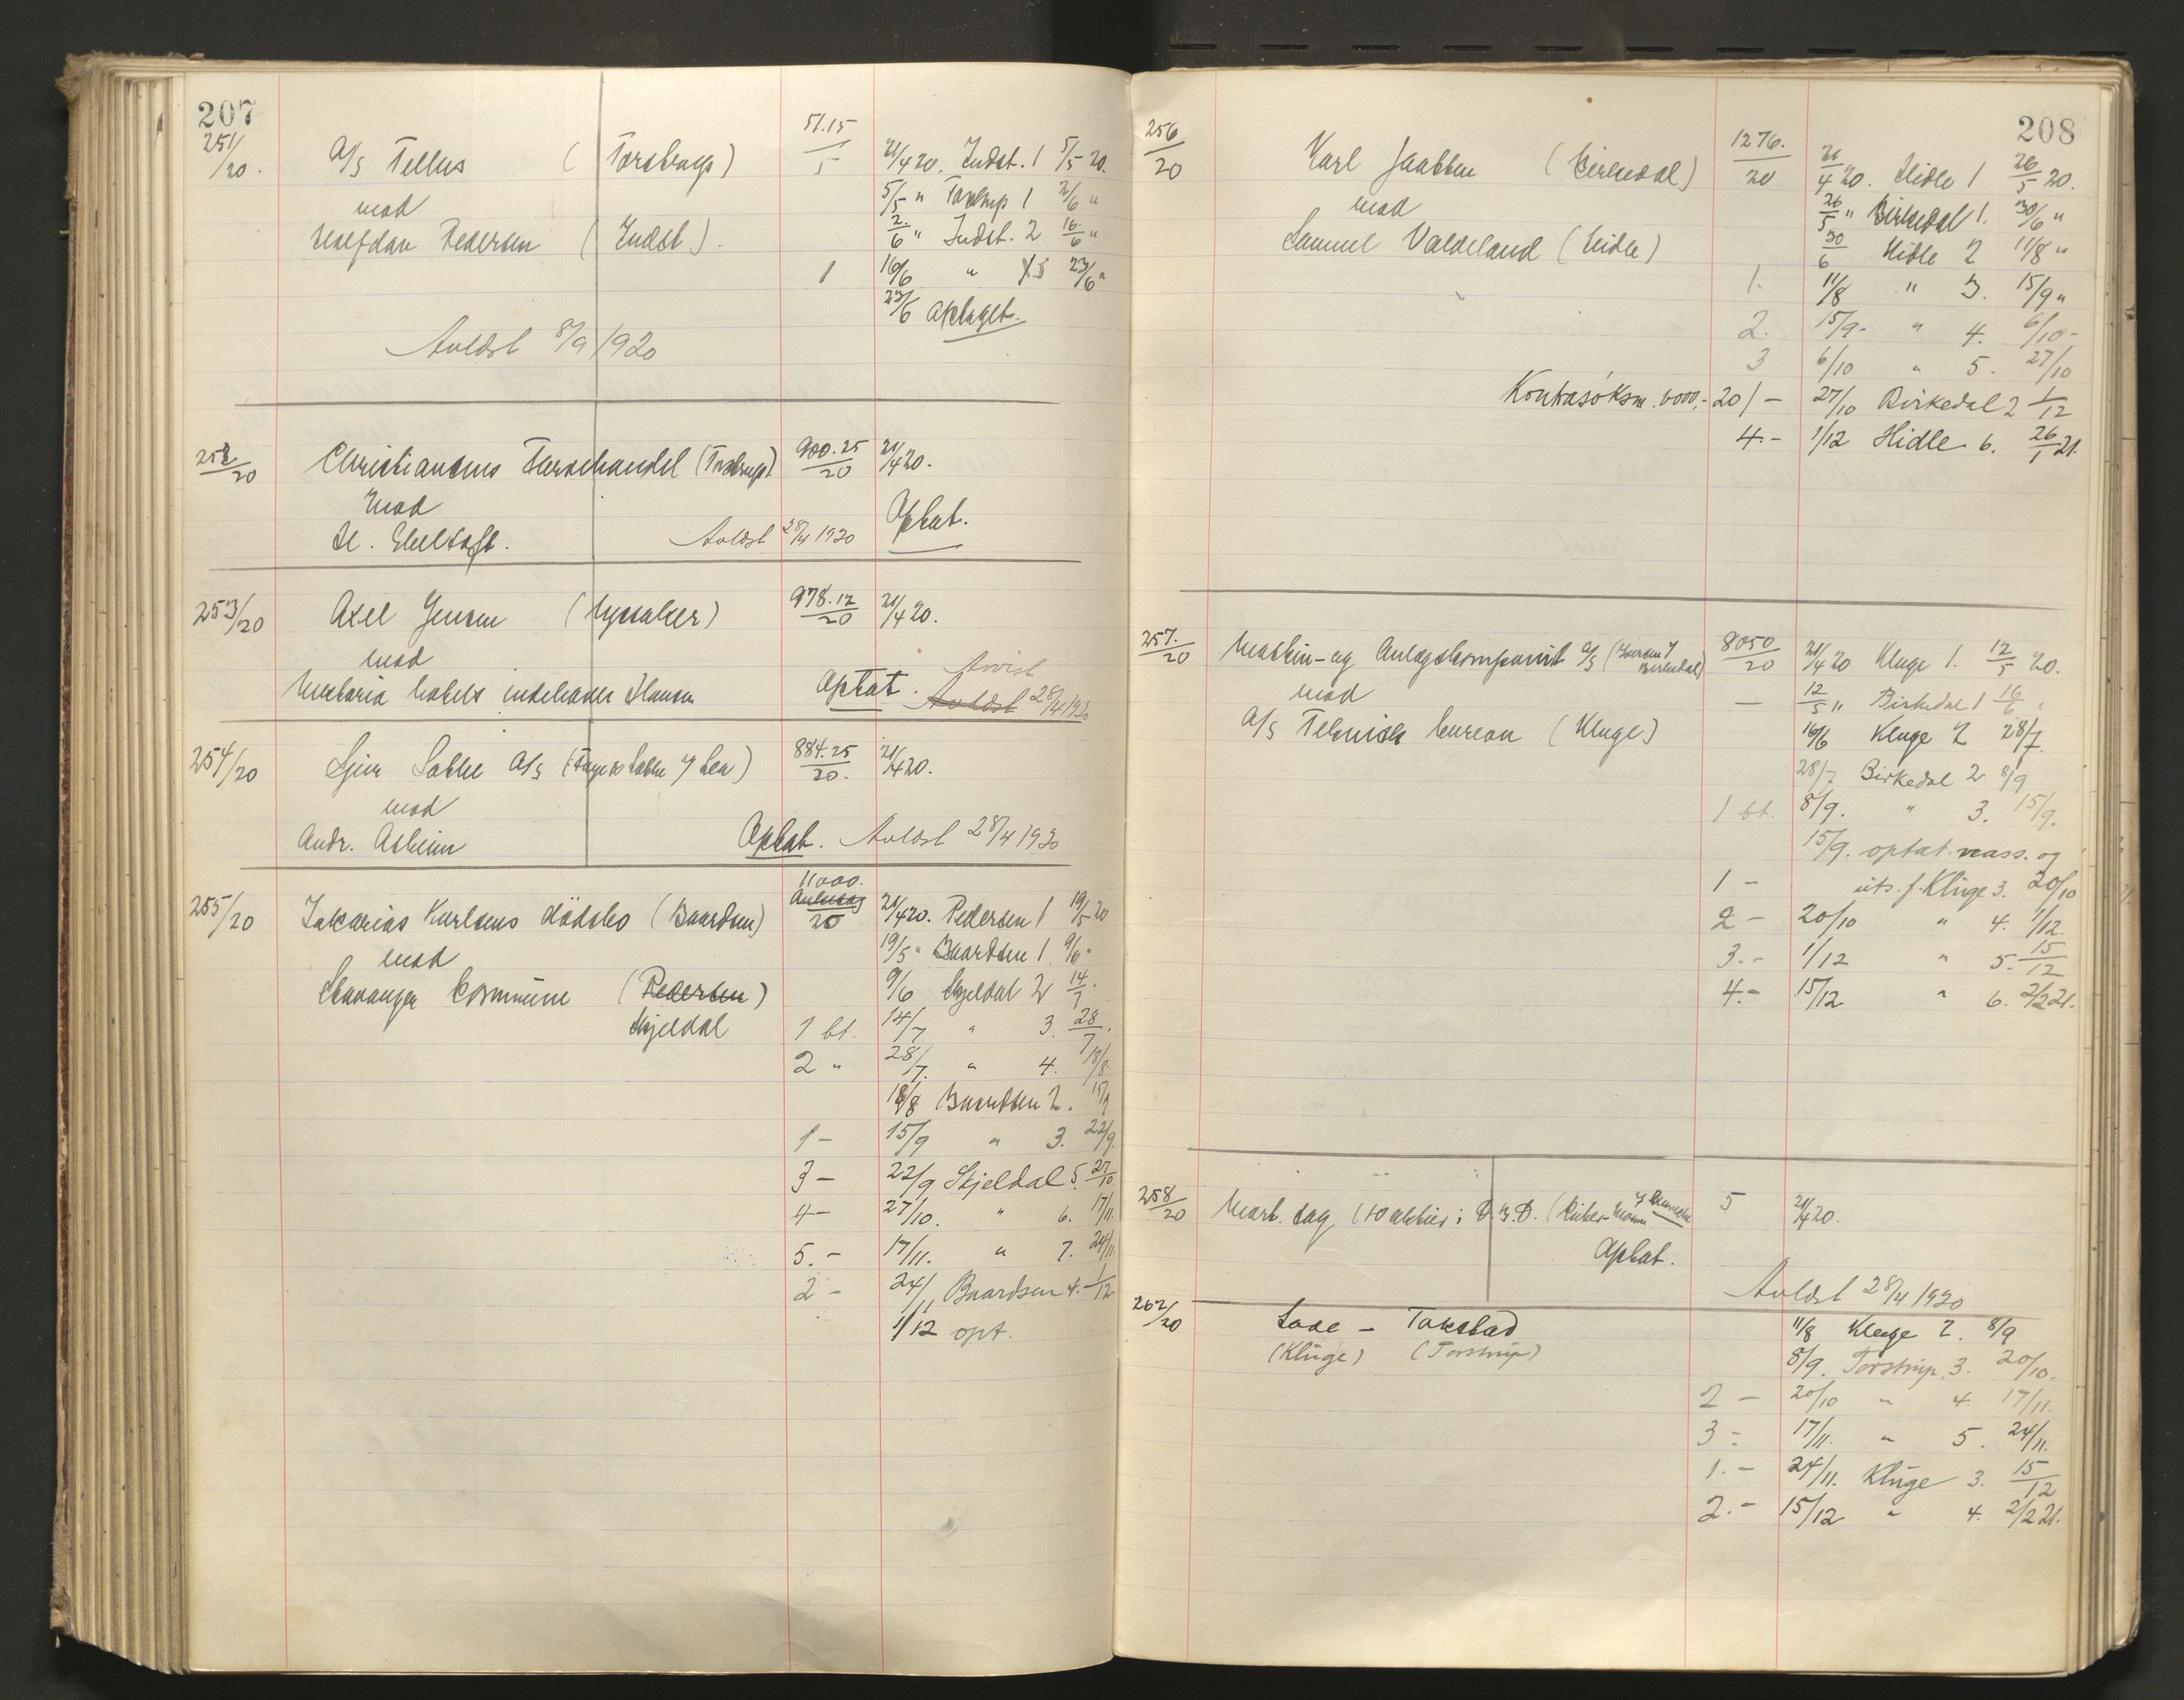 207
251/20. A/S Tellus (Torstrup) 51.15/5 21/4 20. Indst. 1 5/5 20.
mod 5/5 " Torstrup 1 2/6 "
Halfdan Pedersen (Indst). 2/6 " Indst. 2 16/6 "
1 16/6 " 3 23/6 "
23/6 optaget.
Avlæst 8/9 1920
252/20 Christiansens (Torstrup). 900.25/20 21/4 20.
mod Optat.
Avlæst 28/4 1920
253/20 Axel Jensen (Lyssaker) 978.12/20 21/4 20.
mod Avvist
hotels indehaver Hansen Optat. Avlæst 28/4 1920
254/20 A/S 884.25/20. 21/4 20.
mod
Andr. Asheim Optat. Avlæst 28/4 1920
11000.
255/20 Zakarias Karlsens dödsbo (Baardsen) 20 21/4 20. Pedersen 1 19/5 20
mod 19/5 " Baardsen 1. 9/6 "
Stavanger Commune (Pedersen) 9/6 Skjeldal 2 14/7.
Skjeldal 1 bt. 14/7 " 3. 28/7.
2 " 28/7. " 4. 18/8.
18/8 Baardsen 2. 15/9
1 – 15/9 " 3. 22/9.
3 – 22/9 Skjeldal 5. 27/10
4 – 27/10. " 6. 17/11.
5. – 17/11. " 7. 24/11.
2 – 24/11 Baardsen 4. 1/12
1/12 opt.
208
256/20 Karl (Birkedal) 1276./20 21/4 20. Hidle 1 26/5 20.
mod 26/5 " Birkedal 1. 30/6 "
Samuel Valdeland (Hidle) 30/6 Hidle 2 11/8 "
1. 11/8 " 3. 15/9 "
2. 15/9 - " 4. 6/10 -
3 6/10 " 5. 27/10
Kontrasöksm. 20/- 27/10 Birkedal 2 1/12
4. - 1/12 Hidle 6. 26/1 21.
257./20 Maskin- og Anlægskompanit A/S (Iversen & Birkedal) 8050/20 21/4 20 Kluge 1. 12/5 20.
mod — 12/5 " Birkedal 1 16/6 "
A/S Teknisk bureau (Kluge) 16/6 Kluge 2 28/7.
28/7 Birkedal 2 8/9
1 bt. 8/9. " 3. 15/9.
15/9. optat. og
1 – uts. f. Kluge 3. 20/10
2 – 20/10 " 4. 1/12.
3. - 1/12 " 5. 15/12
4. - 15/12 " 6. 2/2 21.
258/20 sag (10 aktier i 5 21/4 20.
Optat.
Avlæst 28/4 1920
262/20 – Takstad 11/8 Kluge 2. 8/9
(Kluge) (Torstrup) 8/9. Torstrup 3. 20/10.
2 – 20/10 " 4. 17/11.
3 – 17/11. " 5. 24/11.
1. – 24/11. Kluge 3. 15/12
2. – 15/12 " 4. 2/2 21.